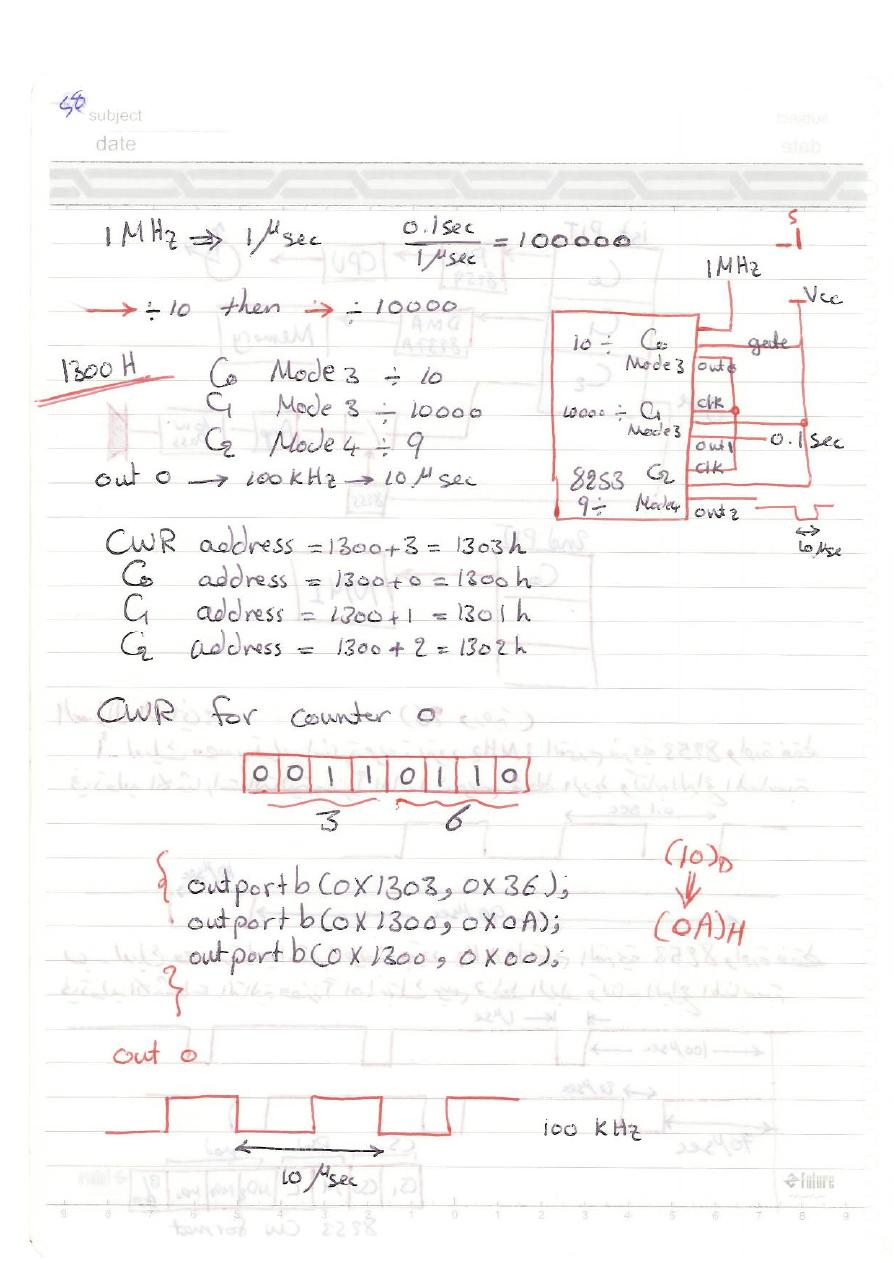 subject
date
1 MHz ⇒ 1 μsec 0.1sec / 1 μsec = 100000
→ ÷ 10 then → ÷ 10000
1300 H
C0 Mode 3 ÷ 10
C1 Mode 3 ÷ 10000
C2 Mode 4 ÷ 9
out 0 → 100 KHz → 10 μsec
1 MHz
Vcc
10 ÷ C0 gate
Mode 3 out0
clk
10000 ÷ C1
Mode3
out1 0.1 sec
8253 C2 clk
9 ÷ Mode4 out2
10 μse
CWR address = 1300+3 = 1303h
C0 address = 1300+0 = 1300h
C1 address = 1300+1 = 1301h
C2 address = 1300+2 = 1302h
CWR for counter 0
0 0 1 1 0 1 1 0
3 6
outportb(0X1303, 0X36);
outportb(0X1300, 0X0A);
outportb(0X1300, 0X00);
(10)D
(0A)H
out 0
10 μsec
100 KHz
Future
9 8 7 6 5 4 3 2 1 0 1 2 3 4 5 6 7 8 9